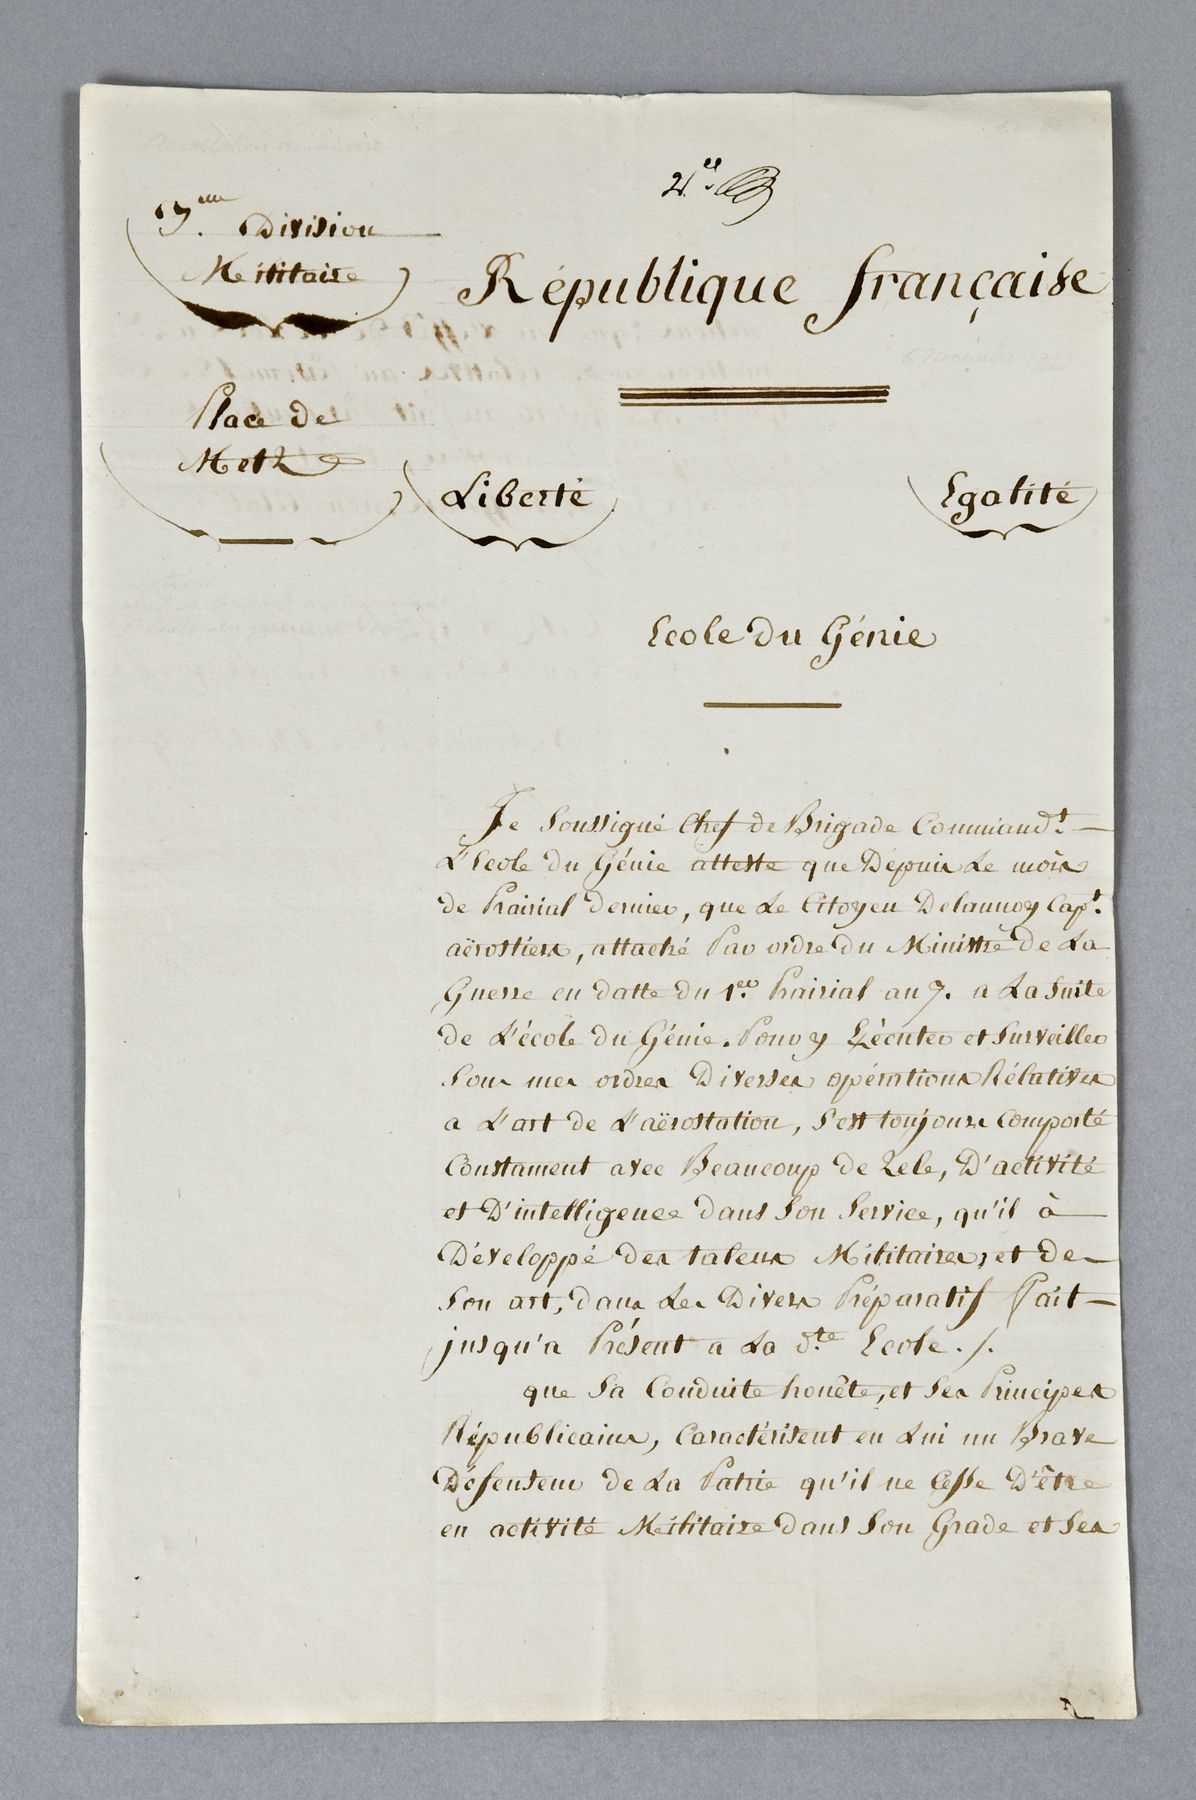 3.eme Division
Militaire
République française
Place de
Metz
Liberté
Egalité
Ecole du Génie
Je Soussigné Chef de Brigade Command.t
L'Ecole du Génie atteste que Dépuis Le mois
de Prairial dernier, que Le Citoyen Delaunoy Cap.t
aërostiers, attaché Par ordre du Ministre de La
Guerre en datte du 1.er Prairial an 7. a La Suite
de L'école du Génie. Pour y Exécuter et Surveiller
Sous mes ordres Diverses opérations Rélatives
a L'art de L'aërostation, S'est toujours Comporté
Constament avec Beaucoup de Zele, D'activité
et D'intelligence dans Son Service, qu'il à
Développé des talens Militaires, et de
Son art, dans Les Divers Préparatif fait
jusqu'a Présent a La d.te Ecole ./.
que Sa Conduite honête, et Ses Principes
Républicains, Caractérisent en Lui un Brave
Défenseur de La Patrie qu'il ne Cesse D'être
en activité Militaire dans Son Grade et Ses